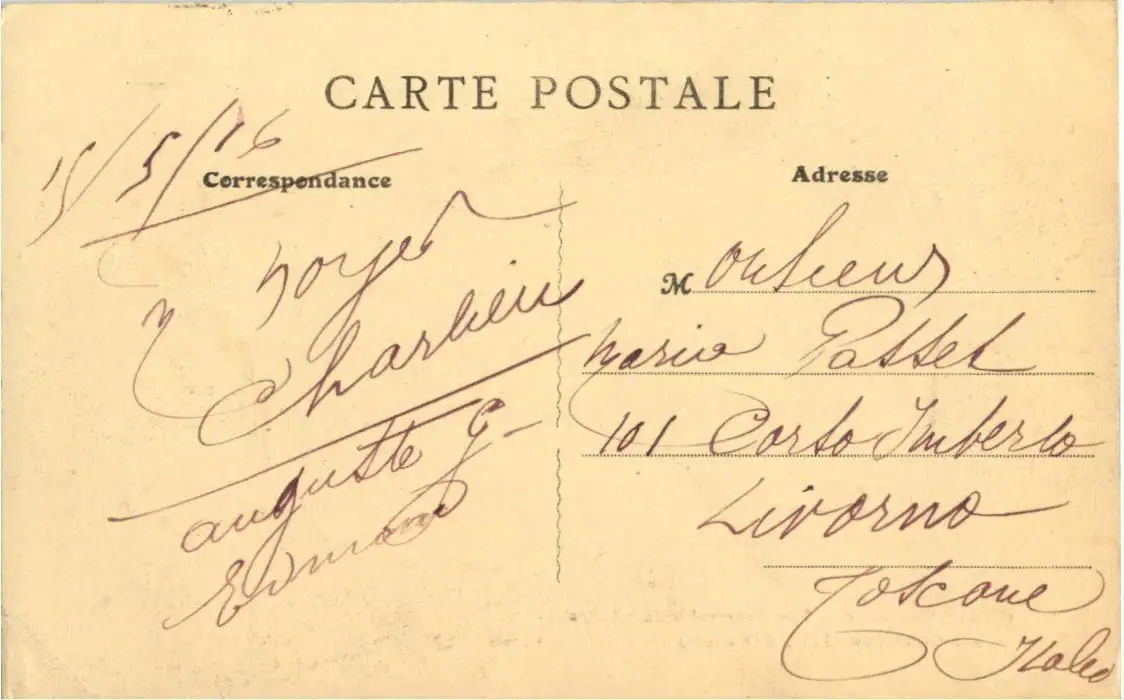 CARTE POSTALE
15/5/16
Correspondance
Charlieu
auguste G-
Edmond
Adresse
Monsieur
Mario Passet
101 Corso Umberto
Livorno
Toscane
Italie